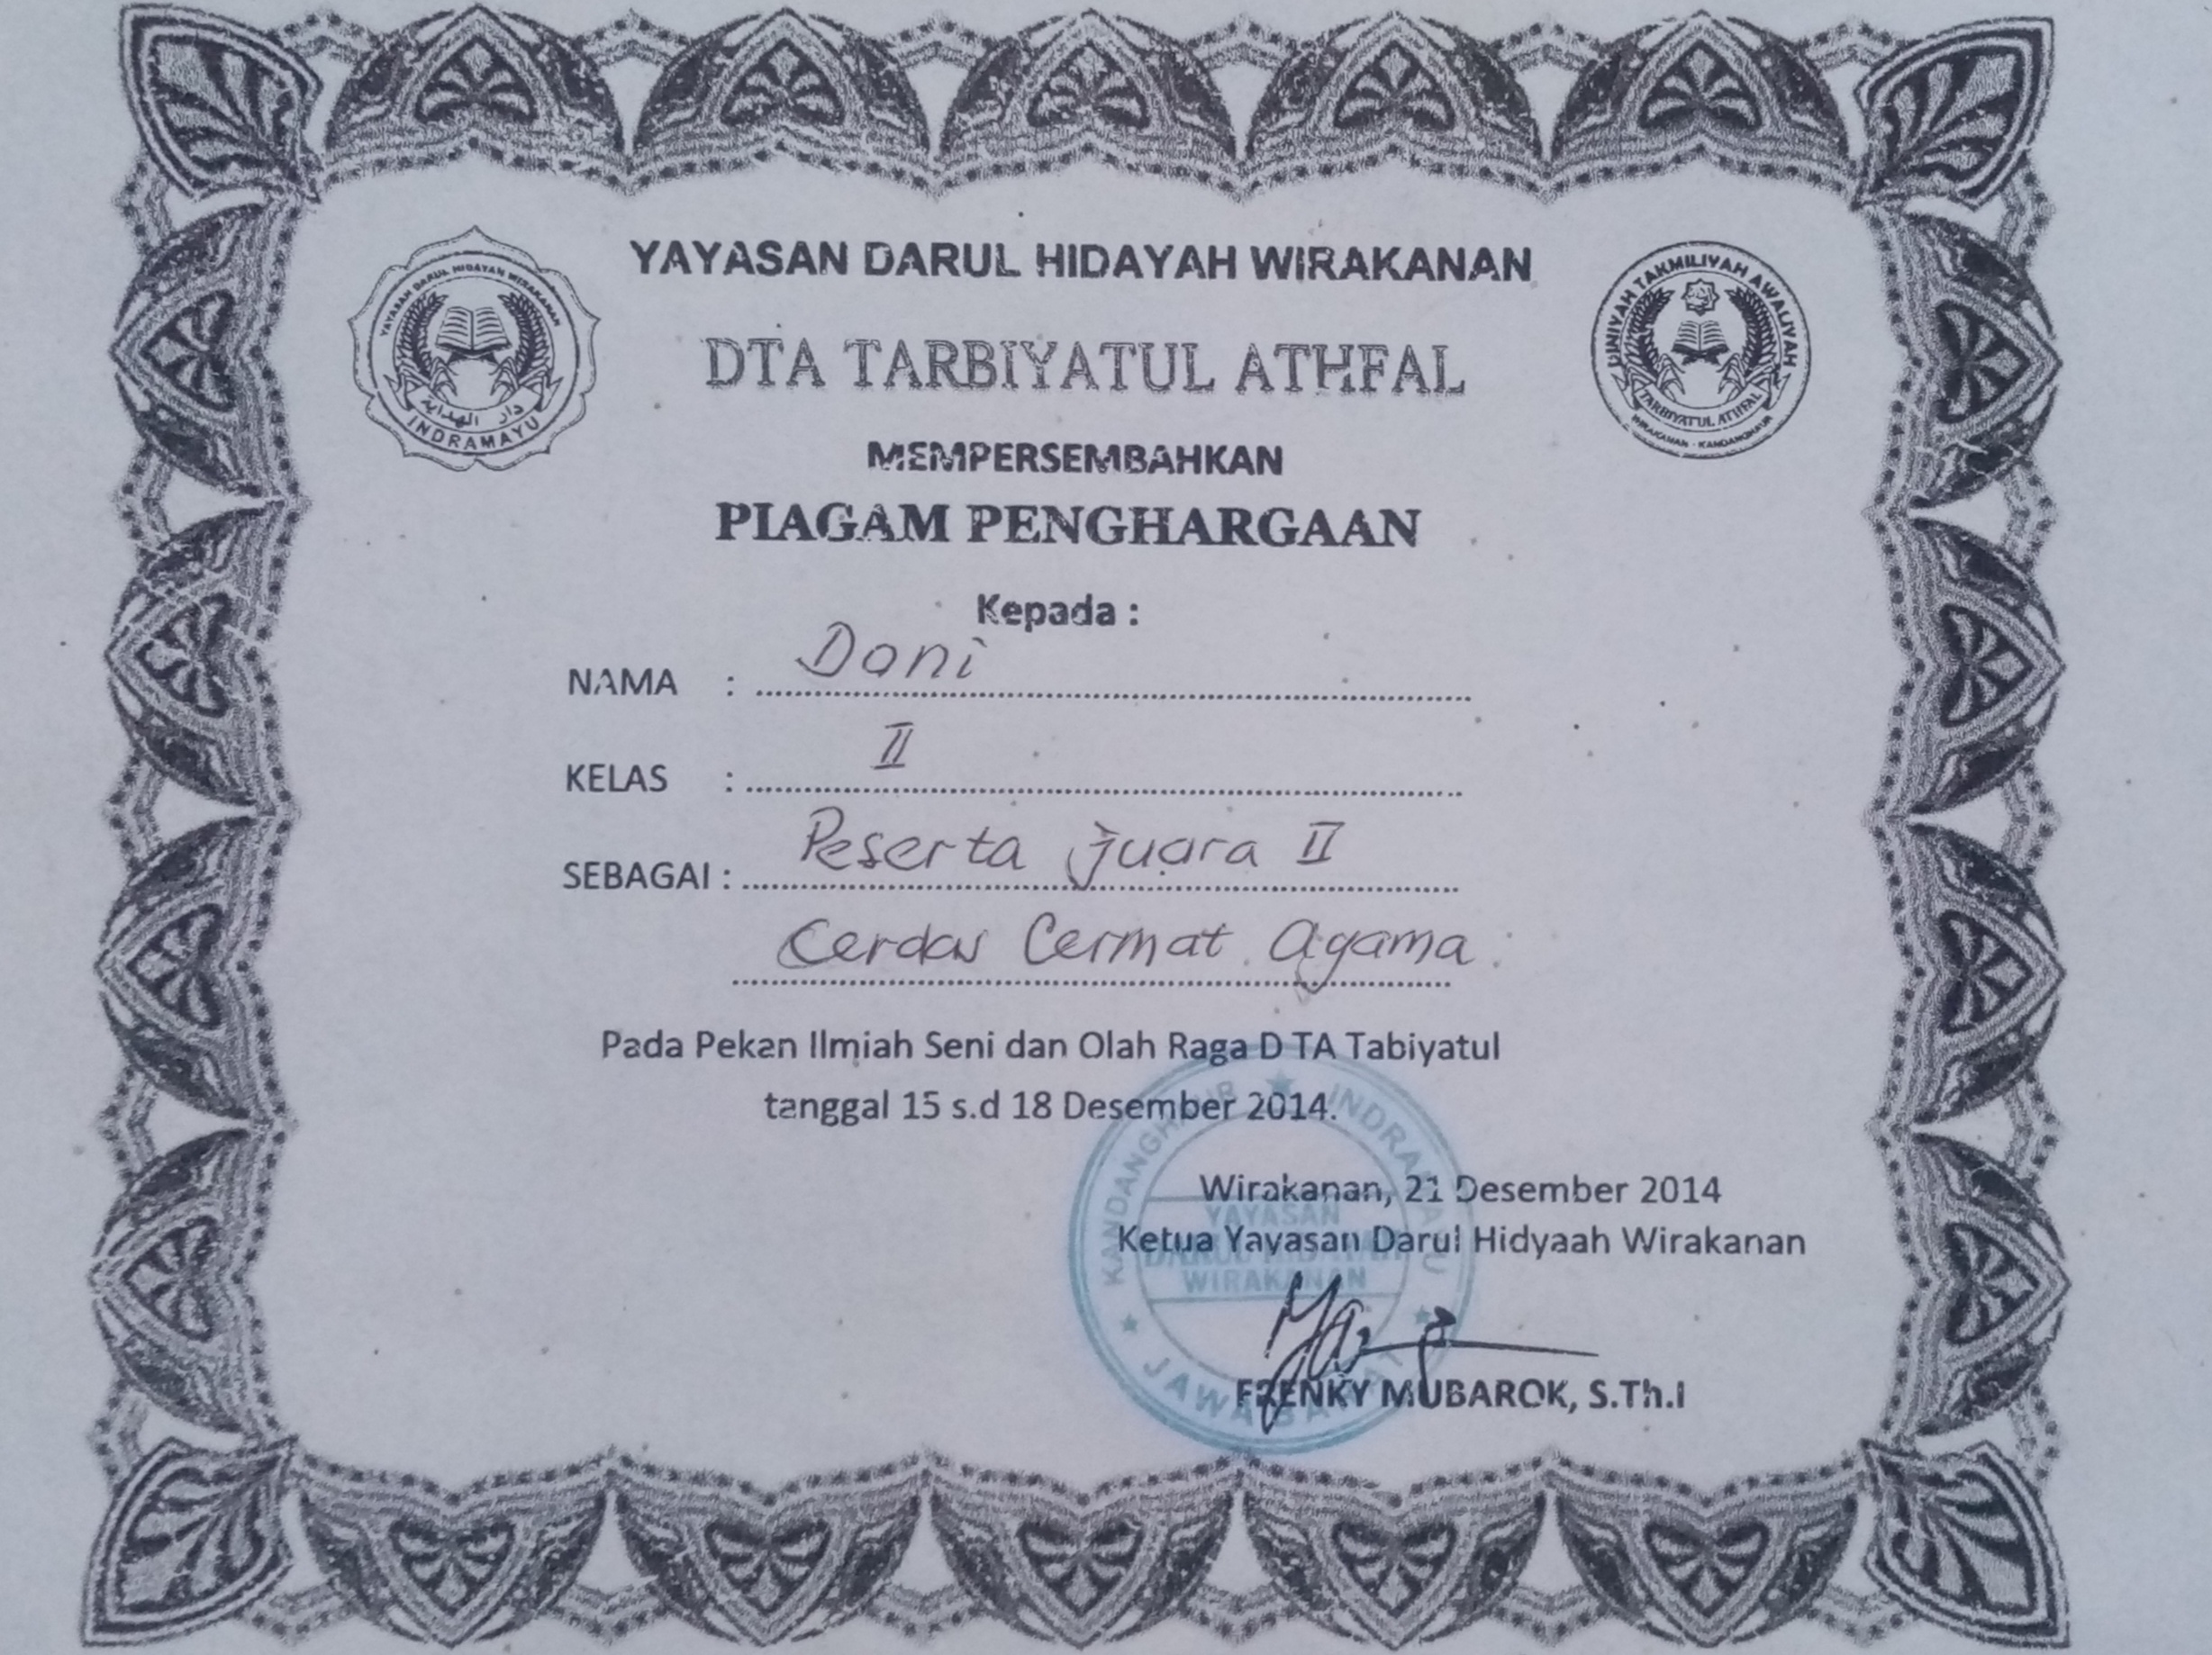 YAYASAN DARUL HIDAYAH WIRAKANAN
YAYASAN DARUL HIDAYAH WIRAKANAN
دار الهداية
INDRAMAYU
DINIYAH TAKMILIYAH AWALIYAH
TARBIYATUL ATHFAL
WIRAKANAN - KANDANGHAUR
DTA TARBIYATUL ATHFAL
MEMPERSEMBAHKAN
PIAGAM PENGHARGAAN
Kepada :
NAMA : Doni
KELAS : II
SEBAGAI : Peserta juara II
Cerdas Cermat Agama
Pada Pekan Ilmiah Seni dan Olah Raga D TA Tabiyatul
tanggal 15 s.d 18 Desember 2014.
Wirakanan, 21 Desember 2014
Ketua Yayasan Darul Hidyaah Wirakanan
FRENKY MUBAROK, S.Th.I
KANDANGHAUR ★ INDRAMAYU
YAYASAN
DARUL HIDAYAH
WIRAKANAN
JAWA BARAT